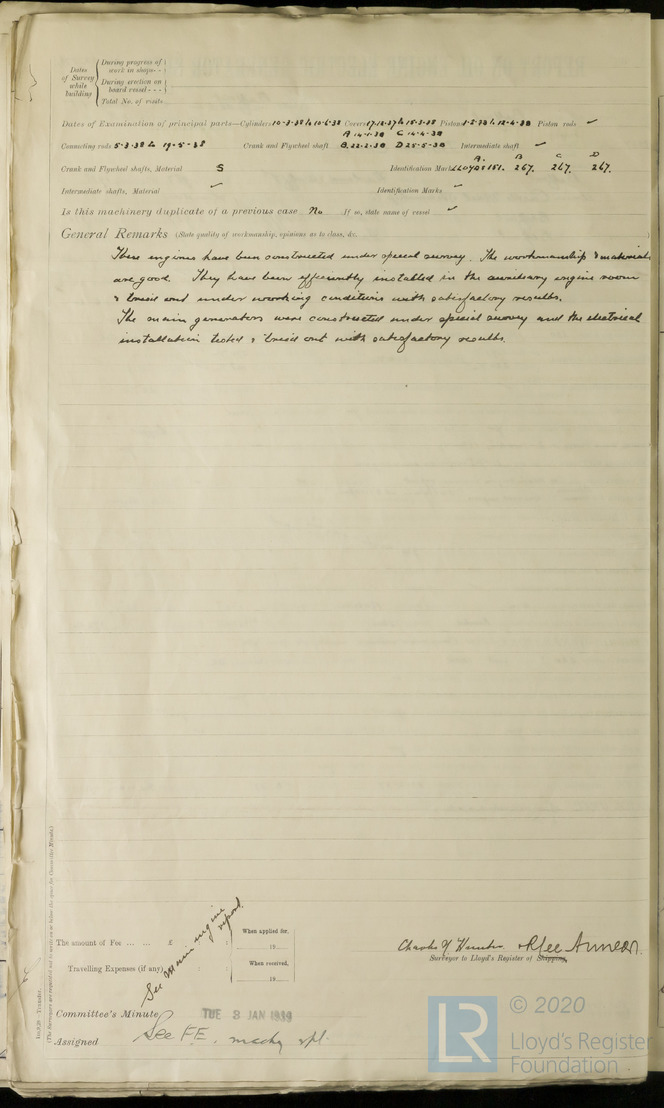 Dates of Survey while building
During progress of work in shops - -
During erection on board vessel - - -
Total No. of visits
Dates of Examination of principal parts—Cylinders 10-3-38 to 10-6-38 Covers 17-12-37 to 15-3-38 Pistons 1-2-38 to 12-4-38 Piston rods ✓
A 14-1-38 C 14-4-38
Connecting rods 5-3-38 to 19-5-38 Crank and Flywheel shaft B 22-2-38 D 25-5-38 Intermediate shaft ✓
A. B C D
Crank and Flywheel shafts, Material S Identification Marks LLOYDS 151. 267. 267. 267.
Intermediate shafts, Material ✓ Identification Marks ✓
Is this machinery duplicate of a previous case No If so, state name of vessel ✓
General Remarks (State quality of workmanship, opinions as to class, &c.
These engines have been constructed under special survey. The workmanship & materials
are good. They have been efficiently installed in the auxiliary engine room
& tried out under working conditions with satisfactory results.
The main generators were constructed under special survey and the electrical
installation tested & tried out with satisfactory results.
See Main engine report.
The amount of Fee ... ... £ : :
When applied for,
19
Travelling Expenses (if any) : :
When received,
19
Charles Hunter
Surveyor to Lloyd's Register of Shipping.
Committee's Minute TUE 3 JAN 1939
Assigned See F.E. machy rpt.
(The Surveyors are requested not to write on or below the space for Committee's Minute.)
© 2020
LR
Lloyd's Register
Foundation